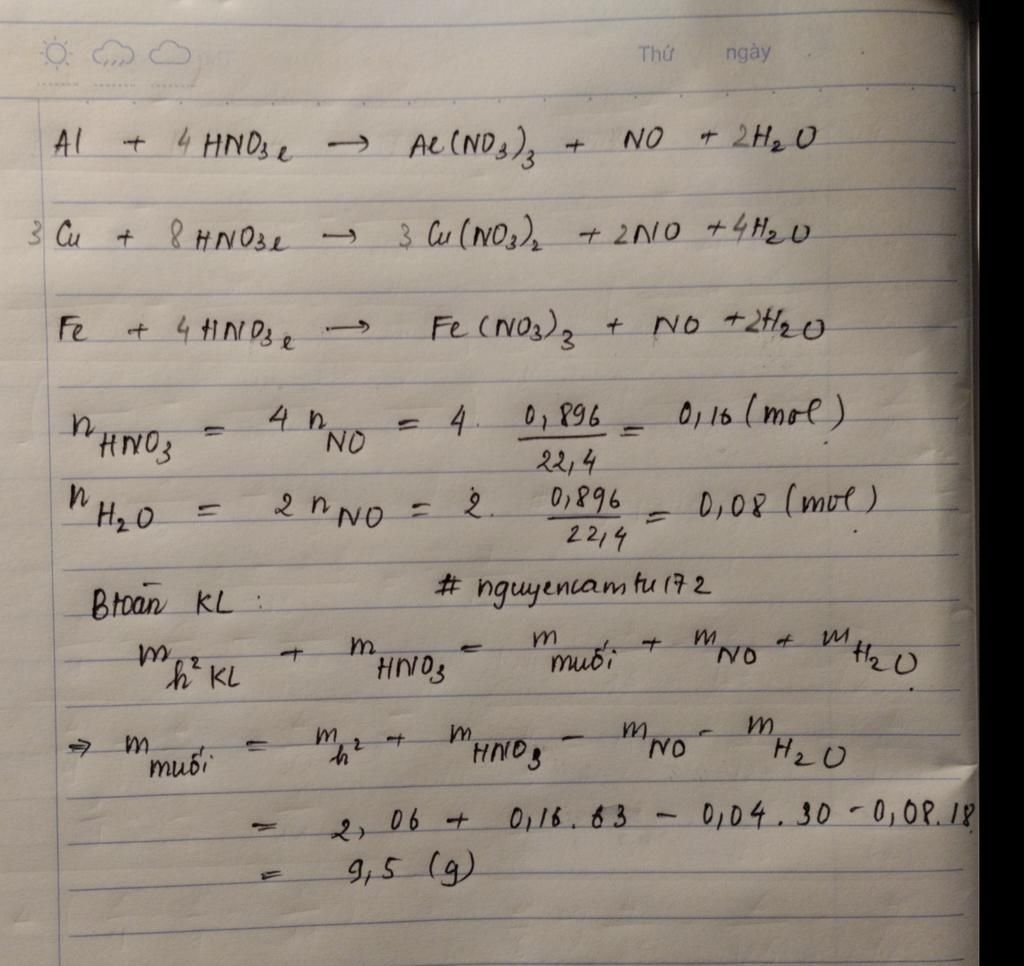 Thứ ngày
Al + 4 HNO3l → Al(NO3)3 + NO + 2H2O
3 Cu + 8 HNO3l → 3 Cu(NO3)2 + 2NO + 4H2O
Fe + 4 HNO3l → Fe(NO3)3 + NO + 2H2O
nHNO3 = 4 nNO = 4. 0,896/22,4 = 0,16 (mol)
nH2O = 2 nNO = 2. 0,896/22,4 = 0,08 (mol)
Btoàn KL : # nguyencamtu172
mh² KL + mHNO3 = mmuối + mNO + mH2O
⇒ mmuối = mh² + mHNO3 - mNO - mH2O
= 2,06 + 0,16.63 - 0,04.30 - 0,08.18
= 9,5 (g)